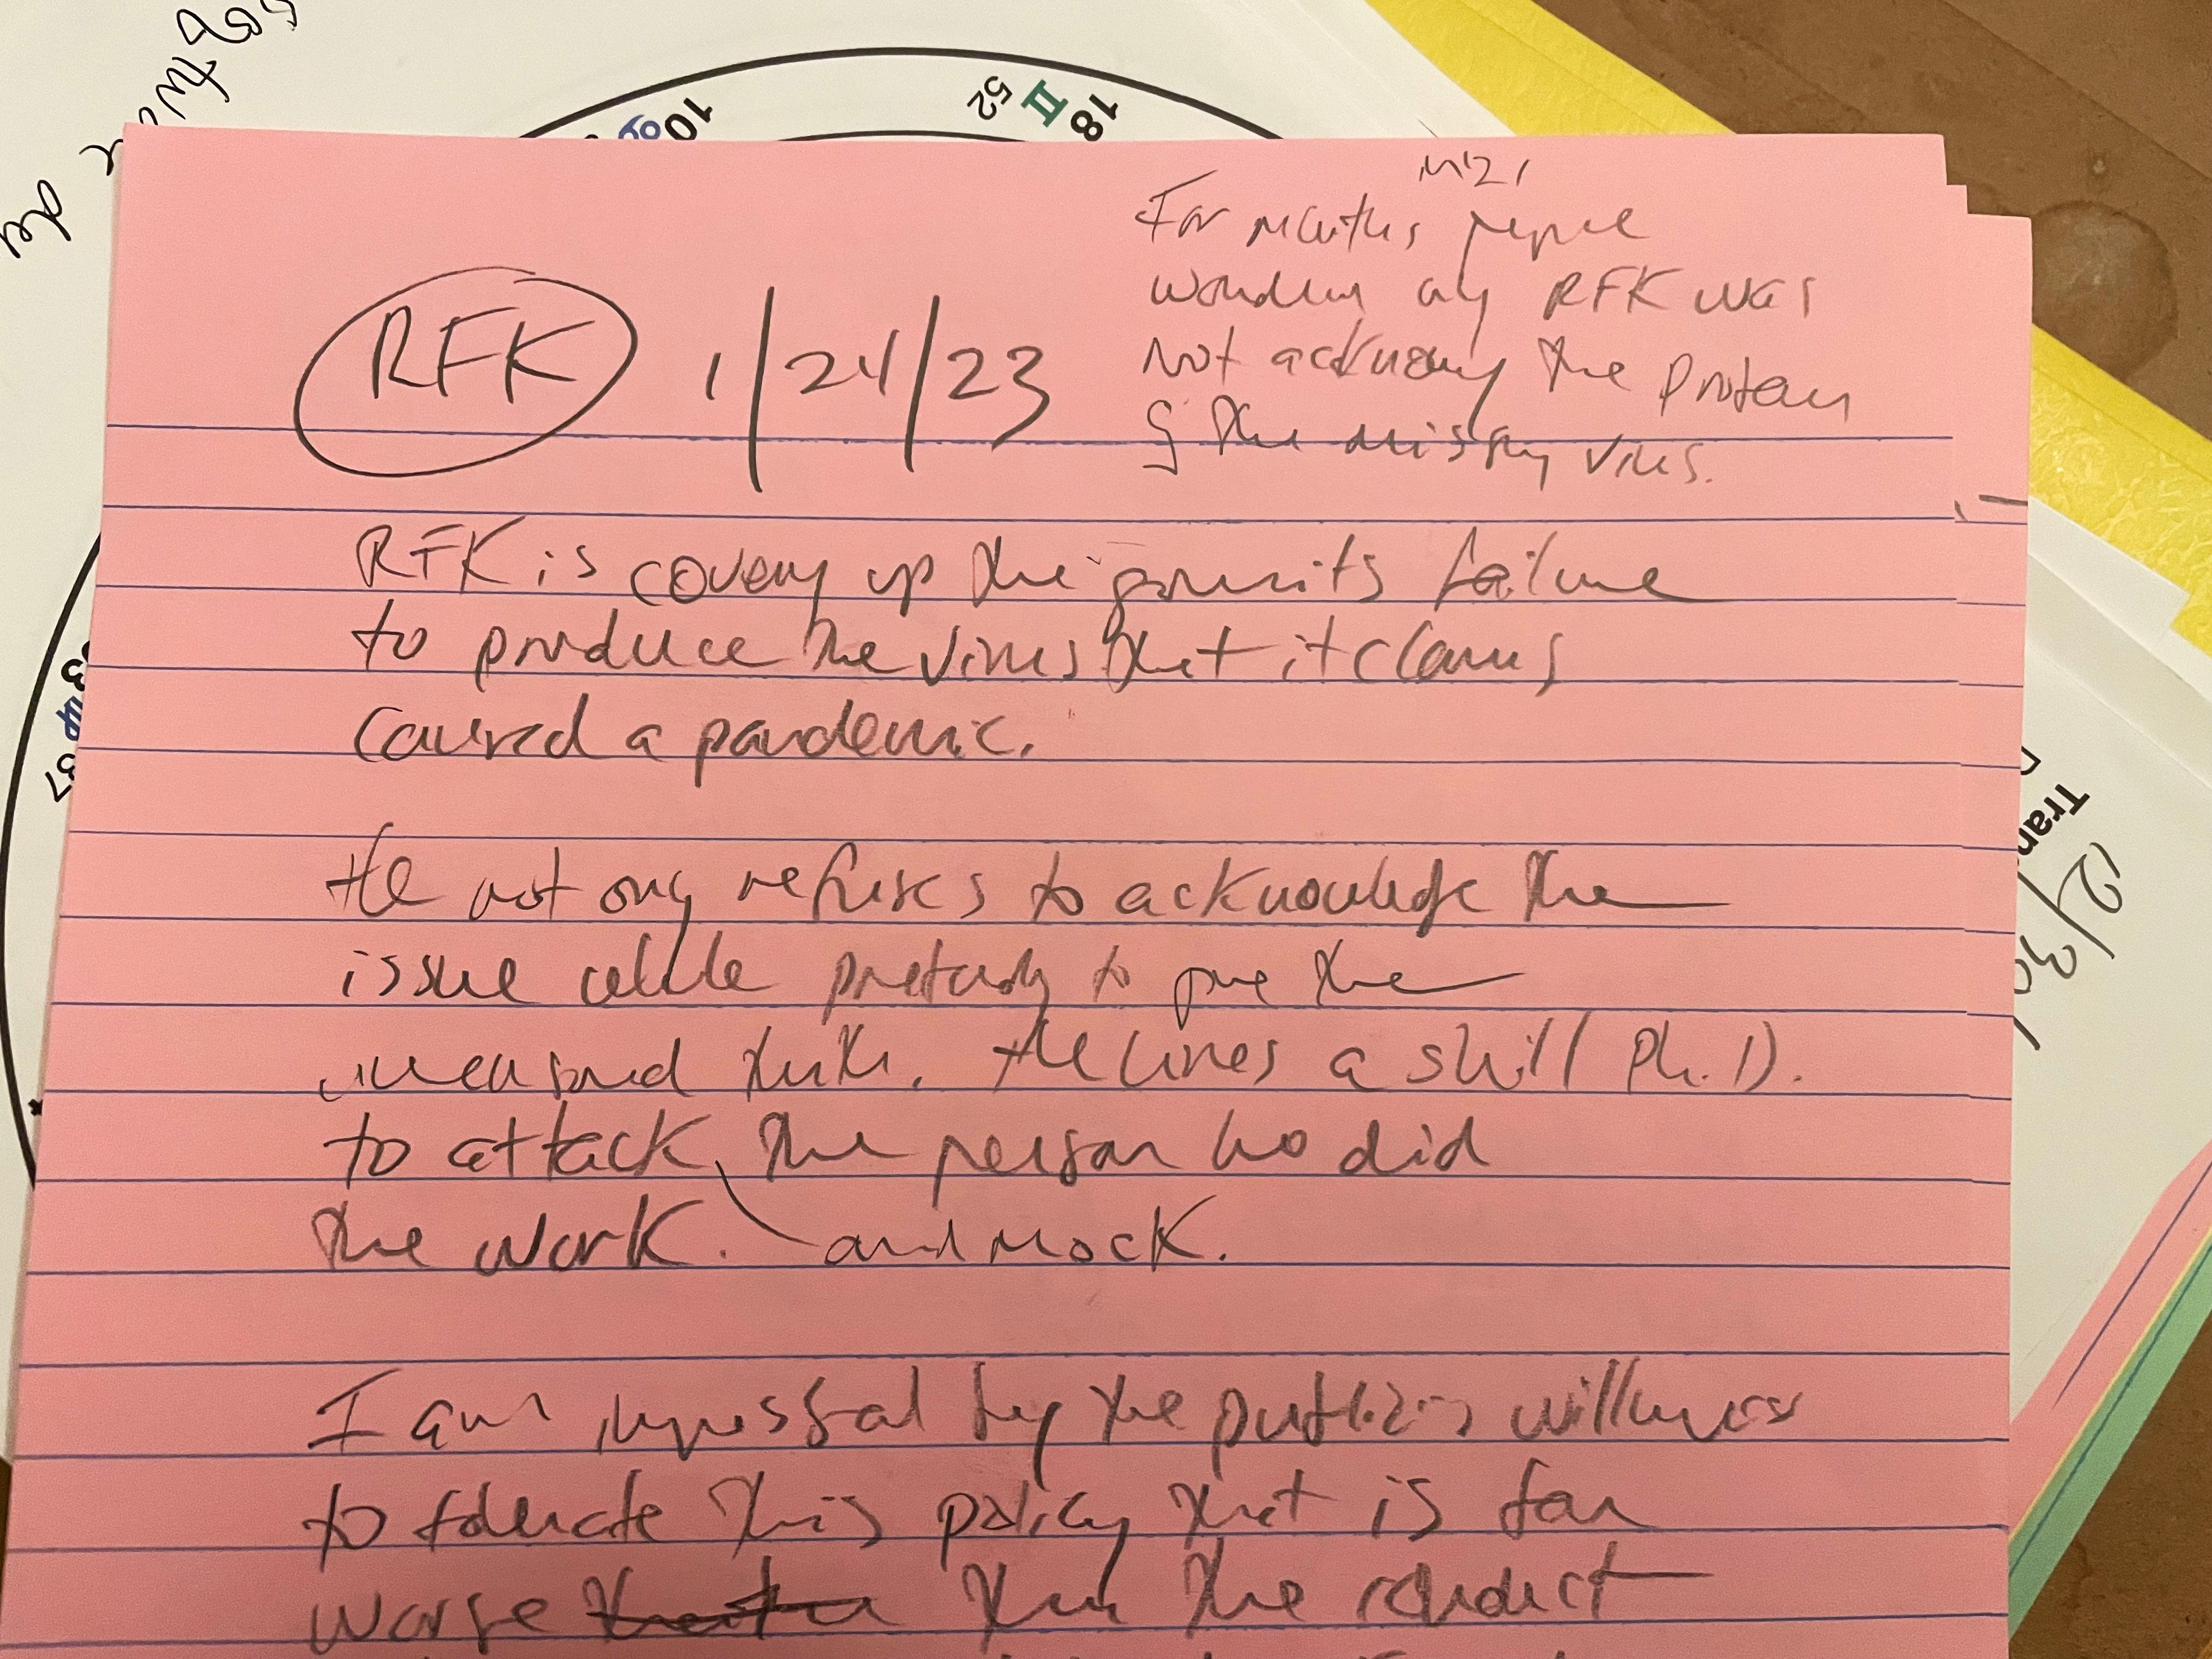 10
52 II 18
For months people
RFK was
not the problem
of the missing virus.
RFK 1/24/23
RFK is covering up the failure
to produce the virus that it claims
caused a pandemic.
He not only refuses to acknowledge the
issue while pretending to give the
truth. He hires a shill Ph.D.
to attack the person who did
the work. and mock.
I am by the public's willingness
to tolerate this policy that is far
worse than the conduct
37
Tran